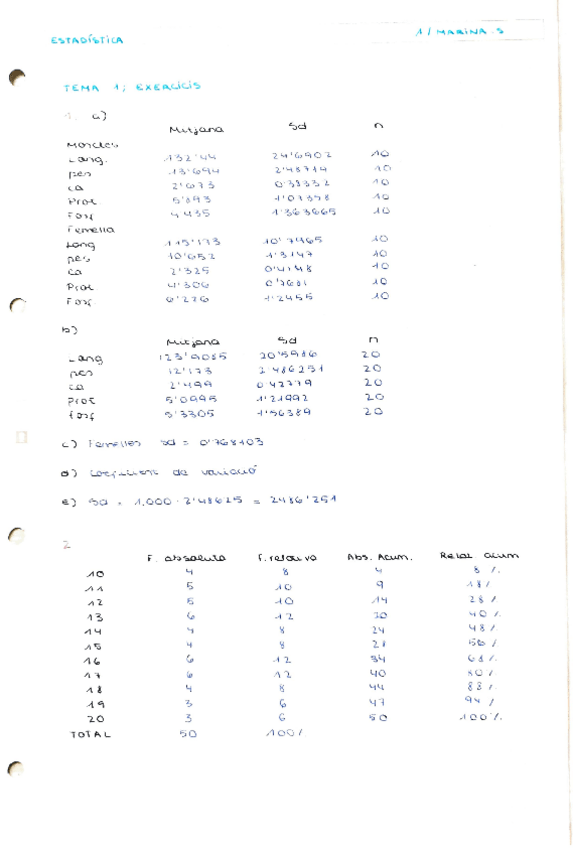 ESTADÍSTICA
1/ MARINA.S
TEMA 1; EXERCICIS
1. a)
Mitjana Sd n
Mascles
Long. 132'44 24'6902 10
pes 13'694 2'48719 10
ca 2'673 0'38332 10
Prot 5'893 10
Fosf 4'435 1'363665 10
Femella
Long 115'173 10'7465 10
pes 10'652 1'3147 10
ca 2'325 0'4148 10
Prot 4'306 0'7681 10
Fosf 6'226 1'2455 10
b)
Mitjana Sd n
Long 123'9065 20'5986 20
pes 12'173 2'486251 20
ca 2'499 0'42779 20
Prot 5'0995 1'21992 20
fosf 5'3305 1'56389 20
c) Femelles sd = 0'768103
d) Coeficient de variació
e) Sd = 1.000 · 2'48625 = 2486'251
2
F. absoluta F. relativa Abs. Acum. Relat acum
10 4 8 4 8 %
11 5 10 9 18%
12 5 10 14 28 %
13 6 12 20 40 %
14 4 8 24 48%
15 4 8 28 56 %
16 6 12 34 68 %
17 6 12 40 80 %
18 4 8 44 88 %
19 3 6 47 94 %
20 3 6 50 100%
TOTAL 50 100%